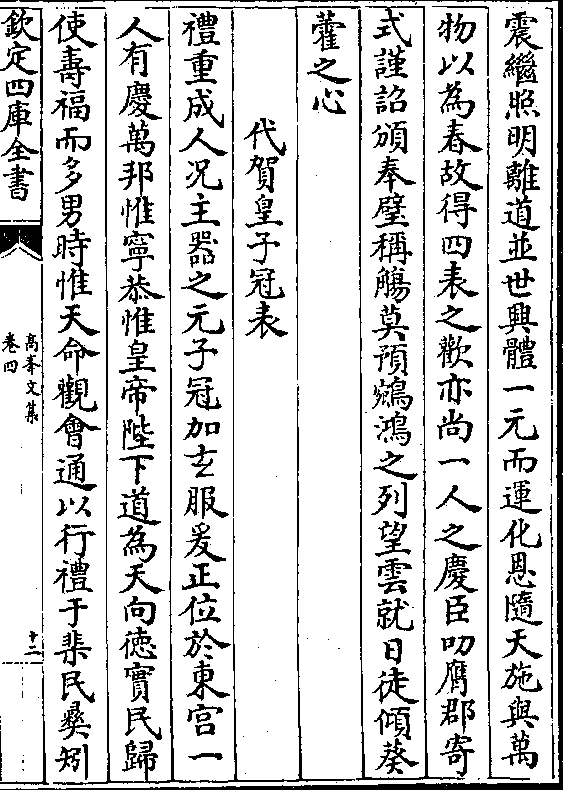 震繼照明離道並世興體一元而運化恩隨天施與萬
物以為春故得四表之歡亦尚一人之慶臣叨膺郡寄
式謹詔頒奉璧稱觴莫預鵷鴻之列望雲就日徒傾葵
藿之心
代賀皇子冠表
禮重成人况主器之元子冠加玄服爰正位於東宮一
人有慶萬邦惟寧恭惟皇帝陛下道為天向徳實民歸
使壽福而多男時惟天命觀會通以行禮于棐民彜矧
欽定四庫全書
高峯文集
卷四
十二